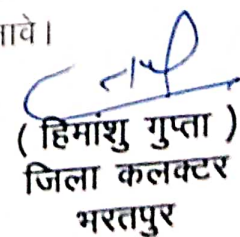 ( हिमांशु गुप्ता )
जिला कलक्टर
भरतपुर